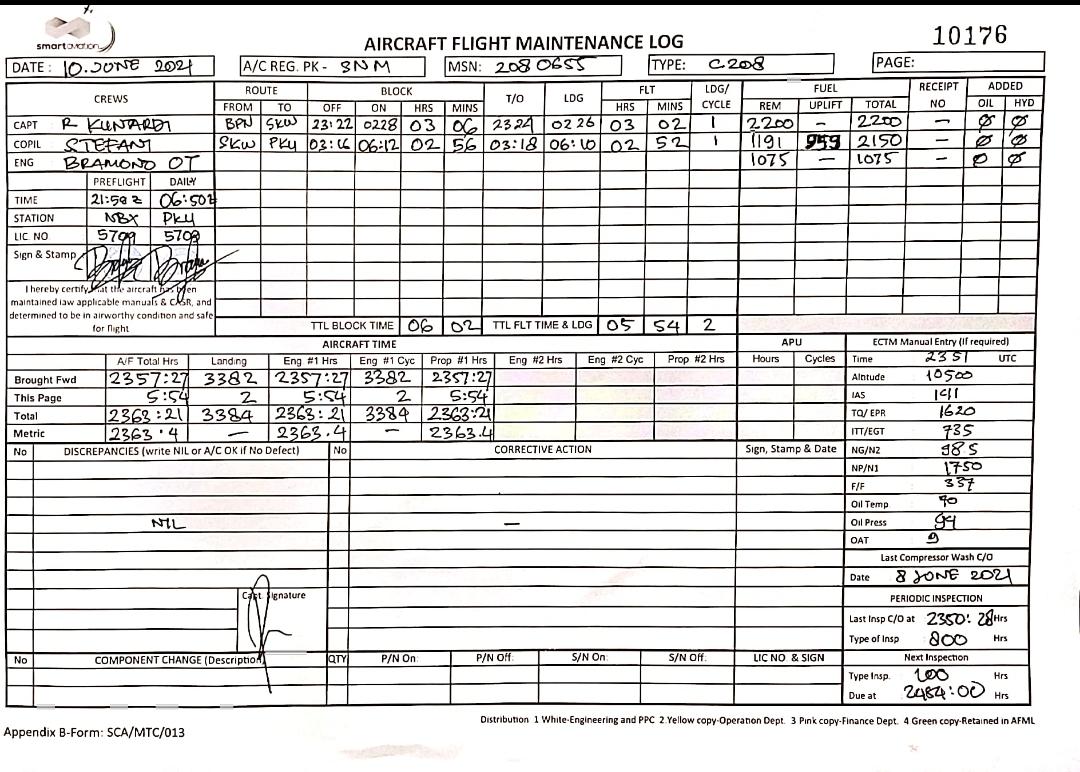 smartaviation
AIRCRAFT FLIGHT MAINTENANCE LOG
10176
DATE : 10.JUNE 2021 A/C REG. PK - SNM MSN: 2080655 TYPE: C208 PAGE:
CREWS ROUTE BLOCK T/O LDG FLT LDG/ CYCLE FUEL RECEIPT NO ADDED
FROM TO OFF ON HRS MINS HRS MINS REM UPLIFT TOTAL OIL HYD
CAPT R KUNTARDI BPN SKW 23:22 0228 03 06 2324 0226 03 02 1 2200 - 2200 - Ø Ø
COPIL STEFANI SKW PKY 03:16 06:12 02 56 03:18 06:10 02 52 1 1191 959 2150 - Ø Ø
ENG BRAMONO OT 1075 - 1075 - Ø Ø
PREFLIGHT DAILY
TIME 21:50 z 06:50z
STATION NBX PKY
LIC. NO 5709 5709
Sign & Stamp
I hereby certify that the aircraft has been
maintained iaw applicable manuals & CASR, and
determined to be in airworthy condition and safe
for flight
TTL BLOCK TIME 06 02 TTL FLT TIME & LDG 05 54 2
AIRCRAFT TIME APU ECTM Manual Entry (If required)
A/F Total Hrs Landing Eng #1 Hrs Eng #1 Cyc Prop #1 Hrs Eng #2 Hrs Eng #2 Cyc Prop #2 Hrs Hours Cycles Time 2351 UTC
Brought Fwd 2357:27 3382 2357:27 3382 2357:27 Altitude 10500
This Page 5:54 2 5:54 2 5:54 IAS 141
Total 2363:21 3384 2363:21 3384 2363:21 TQ/ EPR 1620
Metric 2363.4 - 2363.4 - 2363.4 ITT/EGT 735
No DISCREPANCIES (write NIL or A/C OK if No Defect) No CORRECTIVE ACTION Sign, Stamp & Date NG/N2 98 5
NP/N1 1750
F/F 337
Oil Temp 70
NIL - Oil Press 94
OAT 9
Last Compressor Wash C/O
Date 8 JUNE 2021
Capt. Signature PERIODIC INSPECTION
Last Insp C/O at 2350:28 Hrs
Type of Insp 800 Hrs
No COMPONENT CHANGE (Description) QTY P/N On: P/N Off: S/N On: S/N Off: LIC NO & SIGN Next Inspection
Type Insp. 100 Hrs
Due at 2484:00 Hrs
Distribution 1 White-Engineering and PPC 2 Yellow copy-Operation Dept. 3 Pink copy-Finance Dept. 4 Green copy-Retained in AFML
Appendix B-Form: SCA/MTC/013